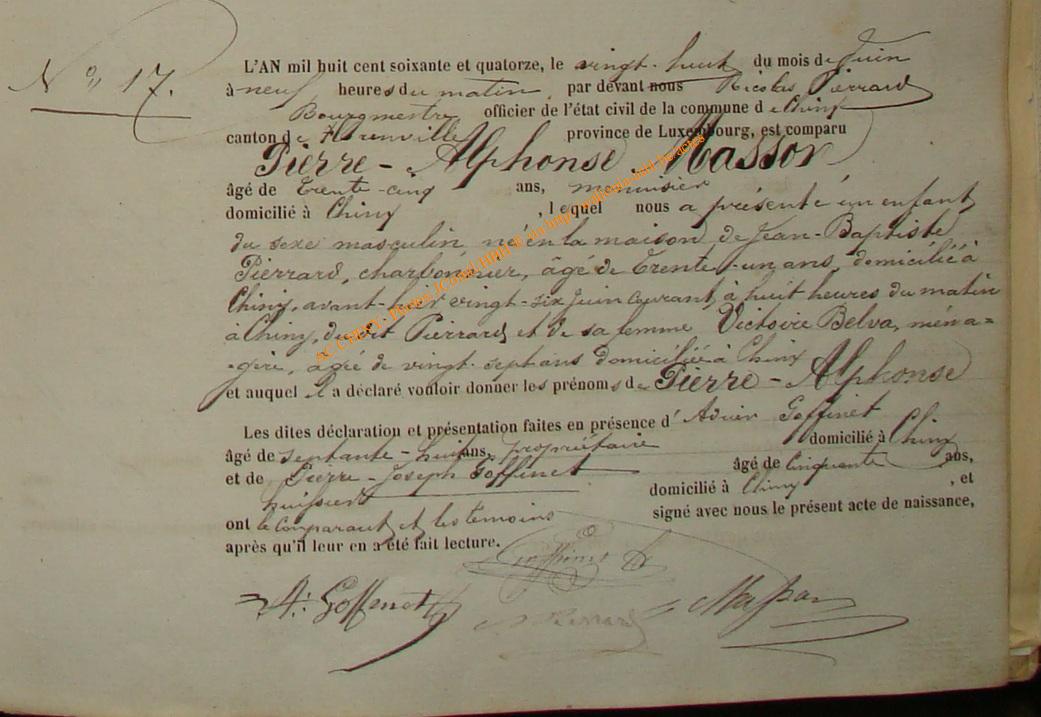 N° 17.
L'AN mil huit cent soixante et quatorze, le vingt-huit du mois de Juin
à neuf heures du matin, par devant nous Nicolas Pierrard
Bourgmestre officier de l'état civil de la commune de Chiny
canton de Florenville province de Luxembourg, est comparu
Pierre-Alphonse Masson
âgé de trente-cinq ans, menuisier
domicilié à Chiny, lequel nous a présenté un enfant
du sexe masculin, né en la maison de Jean-Baptiste
Pierrard, charbonnier, âgé de trente-un ans, domicilié à
Chiny, avant-hier vingt-six Juin courant, à huit heures du matin
à Chiny, du dit Pierrard et de sa femme Victoire Belva, ména-
-gère, âgée de vingt-sept ans domiciliée à Chiny
et auquel il a déclaré vouloir donner les prénoms de Pierre-Alphonse
Les dites déclaration et présentation faites en présence d' Goffinet
âgé de septante-huit ans, propriétaire domicilié à Chiny
et de Pierre-Joseph Goffinet âgé de Cinquante ans,
huissier domicilié à Chiny, et
ont le Comparant et les témoins signé avec nous le présent acte de naissance,
après qu'il leur en a été fait lecture.
Goffinet
A: Goffinet N Pierrard Masson